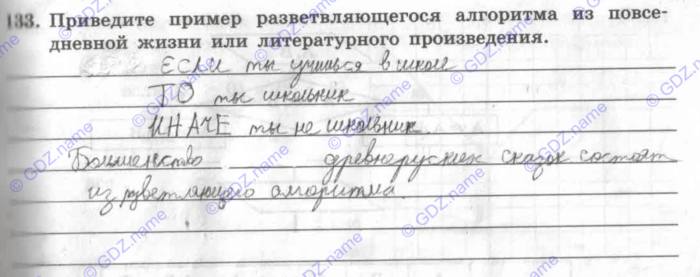 133. Приведите пример разветвляющегося алгоритма из повсе-
дневной жизни или литературного произведения.
ЕСЛИ ты учишься в школе
ТО ты школьник
ИНАЧЕ ты не школьник.
Большенство древнеруских сказок состоят
из разветляющего алгоритма.
© GDZ.name